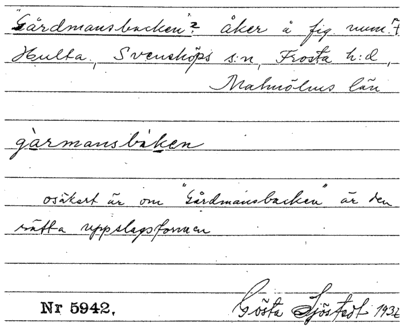 "Gårdmansbacken"? åker å fig. num. 7
Hulta, Svensköps s:n, Frosta h:d,
Malmöhus län
gàrmansbáken
osäkert är om "Gårdmansbacken" är den
rätta uppslagsformen
Nr 5942. Gösta Sjöstedt 1932